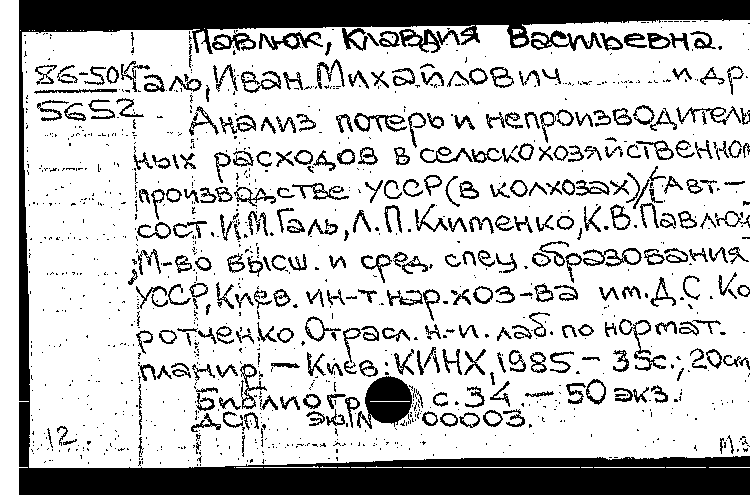 Павлюк, Клавдия Васильевна.
86-50К
Галь, Иван Михайлович и др.
5652
Анализ потерь и непроизводитель
ных расходов в сельскохозяйственном
производстве УССР (в колхозах)/[Авт.-
сост. И.М.Галь, Л.П.Клименко, К.В.Павлюк
; М-во высш. и сред. спец. образования
УССР, Киев. ин-т нар. хоз-ва им. Д.С. Ко
ротченко, Отрасл. н.-и. лаб. по нормат.
планир. – Киев: КИНХ, 1985. – 35с.; 20см
Библиогр с. 34. – 50 экз.
ДСП. экз.N 00003.
12.
М.З